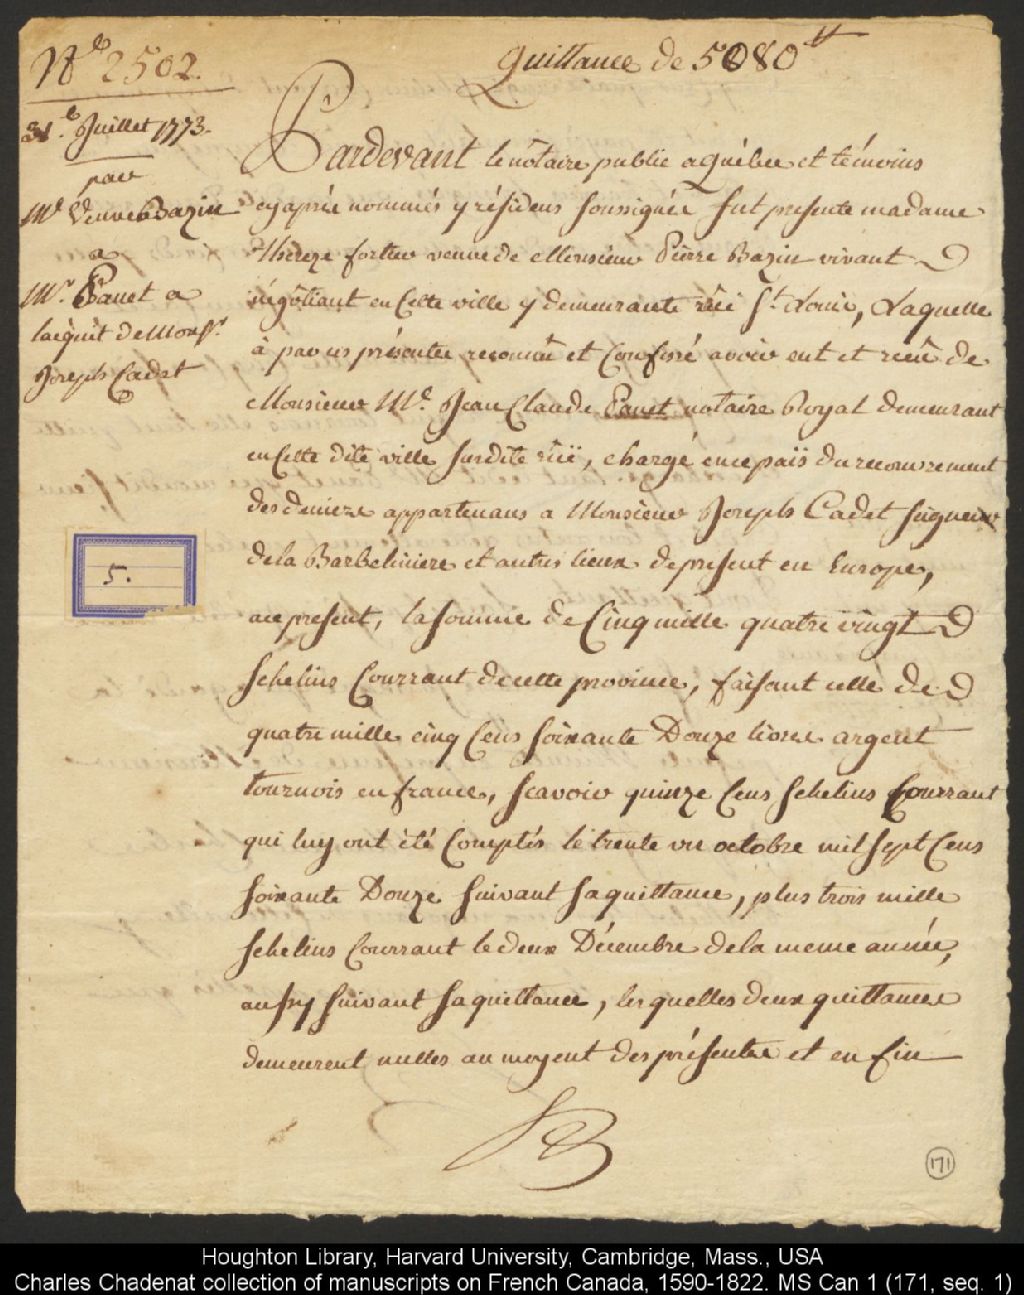 No 2502.
Quittance de 5080 ₶
31.e Juillet 1773.
par
Me Veuve Bazin
a
Mr. Panet a
l'acquit de Monsr.
Joseph Cadet
Pardevant le nótaire public a Québec et témoins
cy après nommés y résidens soussignés fut presente madame
Thereze fortier veuve de Monsieur Pierre Bazin vivant
négôtiant en Cette ville y demeurante rüe St. Louis, Laquelle
à par ces présentes reconnu et Confessé avoir eut et reçu de
Monsieur Me. Jean Claude Panet notaire Royal demeurant
en Cette dite ville susdite rüe, chargé en ce païs du recouvrement
des deniers appartenans a Monsieur Joseph Cadet seigneur
de la Barbeliniere et autres lieux de present en Europe,
ace present, la somme de Cinq mille quatre vingt
schelins Courrant de cette province, faisant celle de
quatre mille cinq Cens soixante Douze livres argent
tournois en france, scavoir quinze Cens schelins Courrant
qui luy ont été Comptés le trente un octobre mil sept Cens
soixante Douze suivant sa quittance, plus trois mille
schelins Courrant le deux Décembre de la meme année,
aussy suivant sa quittance, les quelles deux quittances
demeurent nulles au moyent des présentes et en fin
5.
171
Houghton Library, Harvard University, Cambridge, Mass., USA
Charles Chadenat collection of manuscripts on French Canada, 1590-1822. MS Can 1 (171, seq. 1)